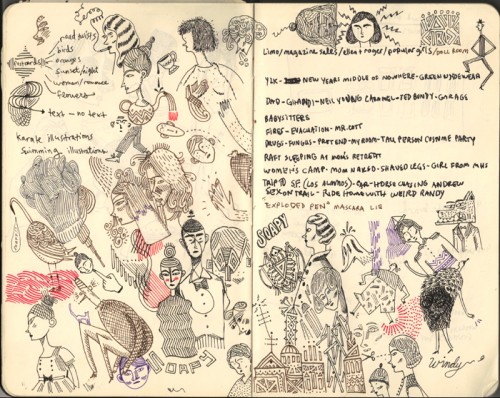 road twists
birds
oranges
sunset/night
woman/romance
flowers
text - no text
Karate illustrations
Swimming illustrations
SOAPY
Limo/magazine sales/elliot + roger/popular girls/BALL ROOM
Y2K - NEW YEARS MIDDLE OF NOWHERE - GREEN UNDERWEAR
DAD - GRANDPA - NEIL YOUNG CARAMEL - TED BUNDY - GARAGE
BABYSITTERS
FIRES - EVACUATION - MR. COTT
DRUGS - FUNGUS - PRETEND - MY ROOM - TALL PERSON COSTUME PARTY
RAFT SLEEPING AT MOM'S RETREAT
WOMEN'S CAMP - MOM NAKED - SHAVED LEGS - GIRL FROM MHS
TRIP TO SF (LOS ALAMOS) - CAR - HORSE CHASING ANDREW
SEX ON TRAIL - RIDE HOME WITH WEIRD RANDY
"EXPLODED PEN" MASCARA LIE
SOAPY
Windy